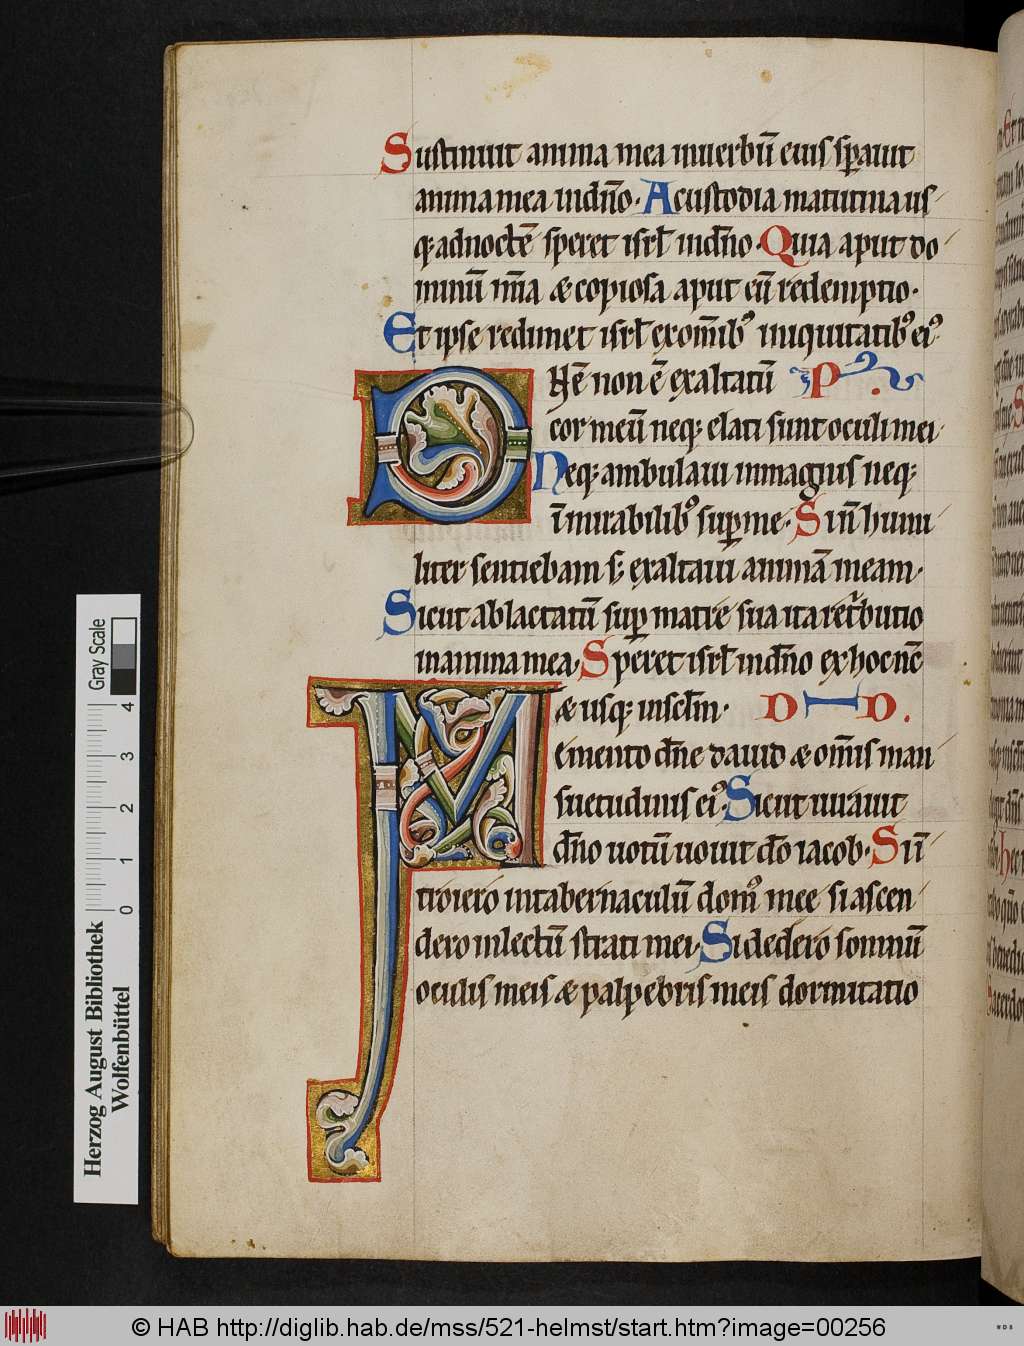 Sustinuit anima mea inuerbū eius sꝑauit
anima mea indn̄o· Acustodia matutina us
qꝫ adnoctē speret isrł indn̄o· Quia aput do
minū mīa & copiosa aput eū redemptio·
Et ipse redimet isrł exom̄ibꝰ iniquitatibꝰ eiꝰ·
DNē non ē exaltatū P .
cor meū neqꝫ elati sunt oculi mei·
Neqꝫ ambulaui inmagnis neqꝫ
ī mirabilibꝰ suꝑ me· Si n̄ humi
liter sentiebam sꝫ exaltaui animā meam·
Sicut ablactatū suꝑ matrē sua ita retͥbutio
inanima mea· Speret isrł indn̄o ex hoc nc̄
& usqꝫ insclm̄· D I D .
Memento dn̄e dauid & om̄is man
suetudinis eiꝰ· Sicut iurauit
dn̄o uotū uouit dō iacob· Si ī
troiero intabernaculū domꝰ mee si ascen
dero inlectū strati mei· Si dedero somnū
oculis meis & palpebris meis dormitatio
Herzog August Bibliothek
Wolfenbüttel
0 1 2 3 4
Gray Scale
© HAB http://diglib.hab.de/mss/521-helmst/start.htm?image=00256